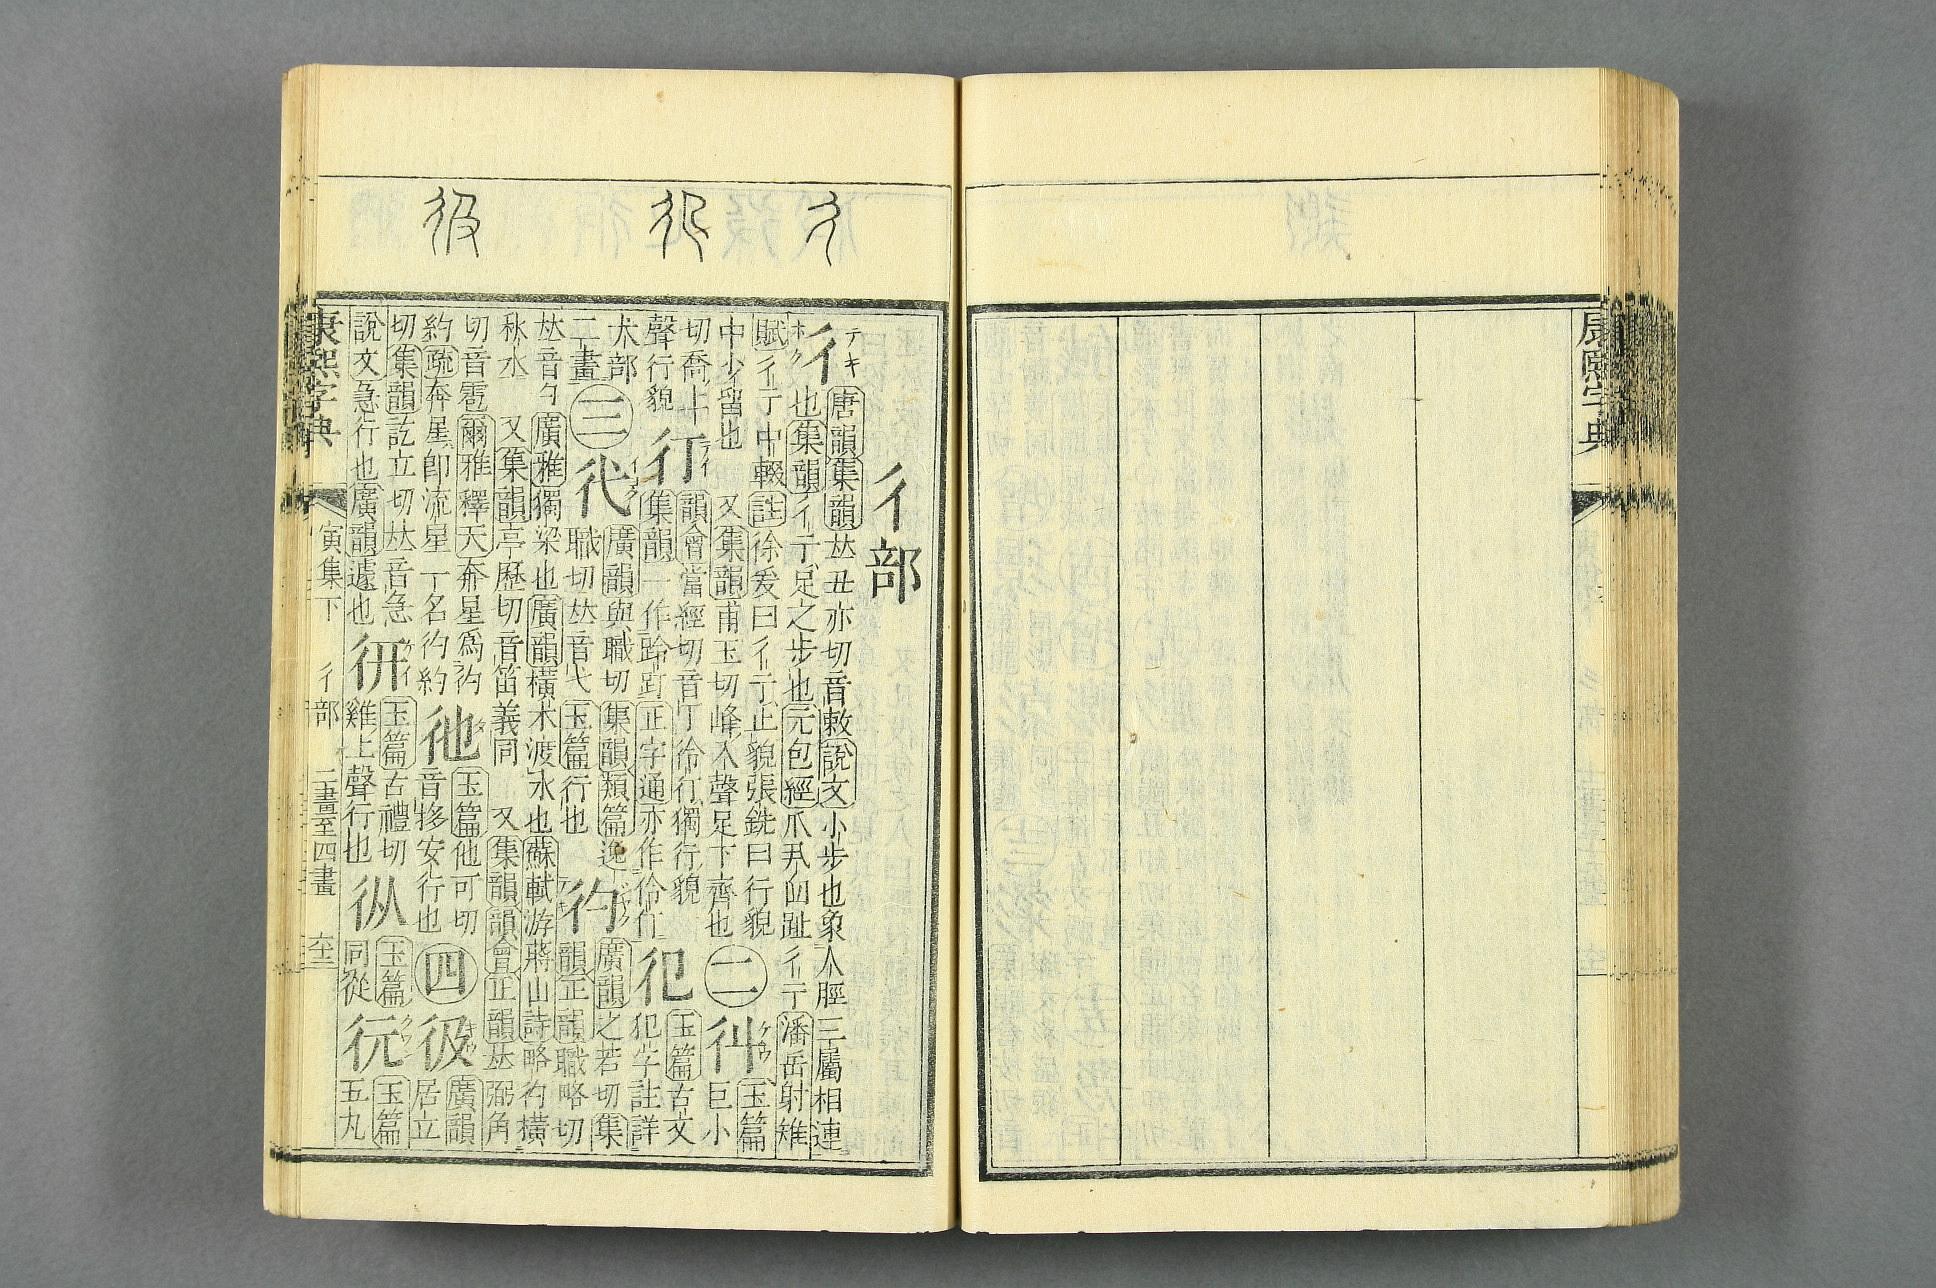 康熙字典
彳 ⿰彳㔾 彶
彳部
彳 テキ 唐韻集韻𠀤丑亦切音敕說文小步也象人脛三屬相連
也集韻彳亍足之步也元包經爪丮㕚趾彳亍潘岳射雉
賦彳亍中輟註徐爰曰彳亍止貌張銑曰行貌
中少留也 又集韻甫玉切峰入聲足下齊也
二 ⿰彳丩 玉篇巨小
切喬上聲行貌
⿰彳丁 集韻韻會當經切音丁彾⿰彳丁獨行貌
集韻一作跉䟓正字通亦作伶仃
⿰彳㔾 玉篇古文犯字註詳
犬部二畫
三 ⿰彳弋 廣韻與職切集韻類篇逸
職切𠀤音弋玉篇行也
彴 廣韻之若切集韻正韻職略切
𠀤音勺廣雅獨梁也廣韻橫木渡水也蘇軾游蔣山詩略彴橫
秋水 又集韻亭歷切音笛義同 又集韻韻會正韻𠀤弼角
切音雹爾雅釋天奔星爲彴
約疏奔星卽流星一名彴約
⿰彳也 玉篇他可切音拸安行也
四 彶 廣韻居立
切集韻訖立切𠀤音急
說文急行也廣韻遽也
⿰彳开 玉篇古禮切雞上聲行也
⿰彳从 玉篇同從
⿰彳元 玉篇五丸
康熙字典 寅集下 彳部 二畫至四畫